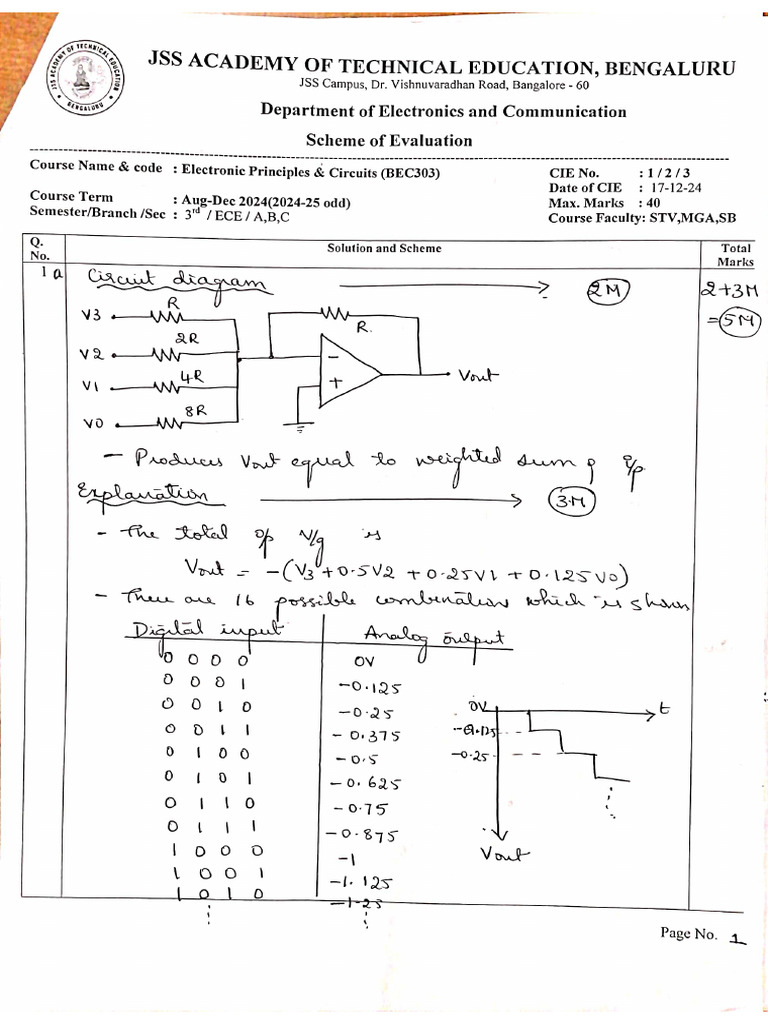 JSS ACADEMY OF TECHNICAL EDUCATION
BENGALURU
JSS ACADEMY OF TECHNICAL EDUCATION, BENGALURU
JSS Campus, Dr. Vishnuvaradhan Road, Bangalore - 60
Department of Electronics and Communication
Scheme of Evaluation
Course Name & code : Electronic Principles & Circuits (BEC303)
CIE No. : 1 / 2 / 3
Date of CIE : 17-12-24
Course Term : Aug-Dec 2024(2024-25 odd)
Max. Marks : 40
Semester/Branch /Sec : 3rd / ECE / A,B,C
Course Faculty: STV,MGA,SB
Q. No.
Solution and Scheme
Total Marks
1 a
Circuit diagram → 2M
2+3M
= 5M
V3 R
R.
V2 2R
V1 4R
V0 8R
−
+
Vout
- Produces Vout equal to weighted sum of i/p
Explanation → 3M
- The total o/p v/g is
Vout = -(V3 + 0.5V2 + 0.25V1 + 0.125V0)
- There are 16 possible combination which is shown
Digital input Analog output
0 0 0 0 0V
0 0 0 1 -0.125
0 0 1 0 -0.25
0 0 1 1 -0.375
0 1 0 0 -0.5
0 1 0 1 -0.625
0 1 1 0 -0.75
0 1 1 1 -0.875
1 0 0 0 -1
1 0 0 1 -1.125
1 0 1 0 -1.25
0V t
-0.125
-0.25
Vout
Page No. 1